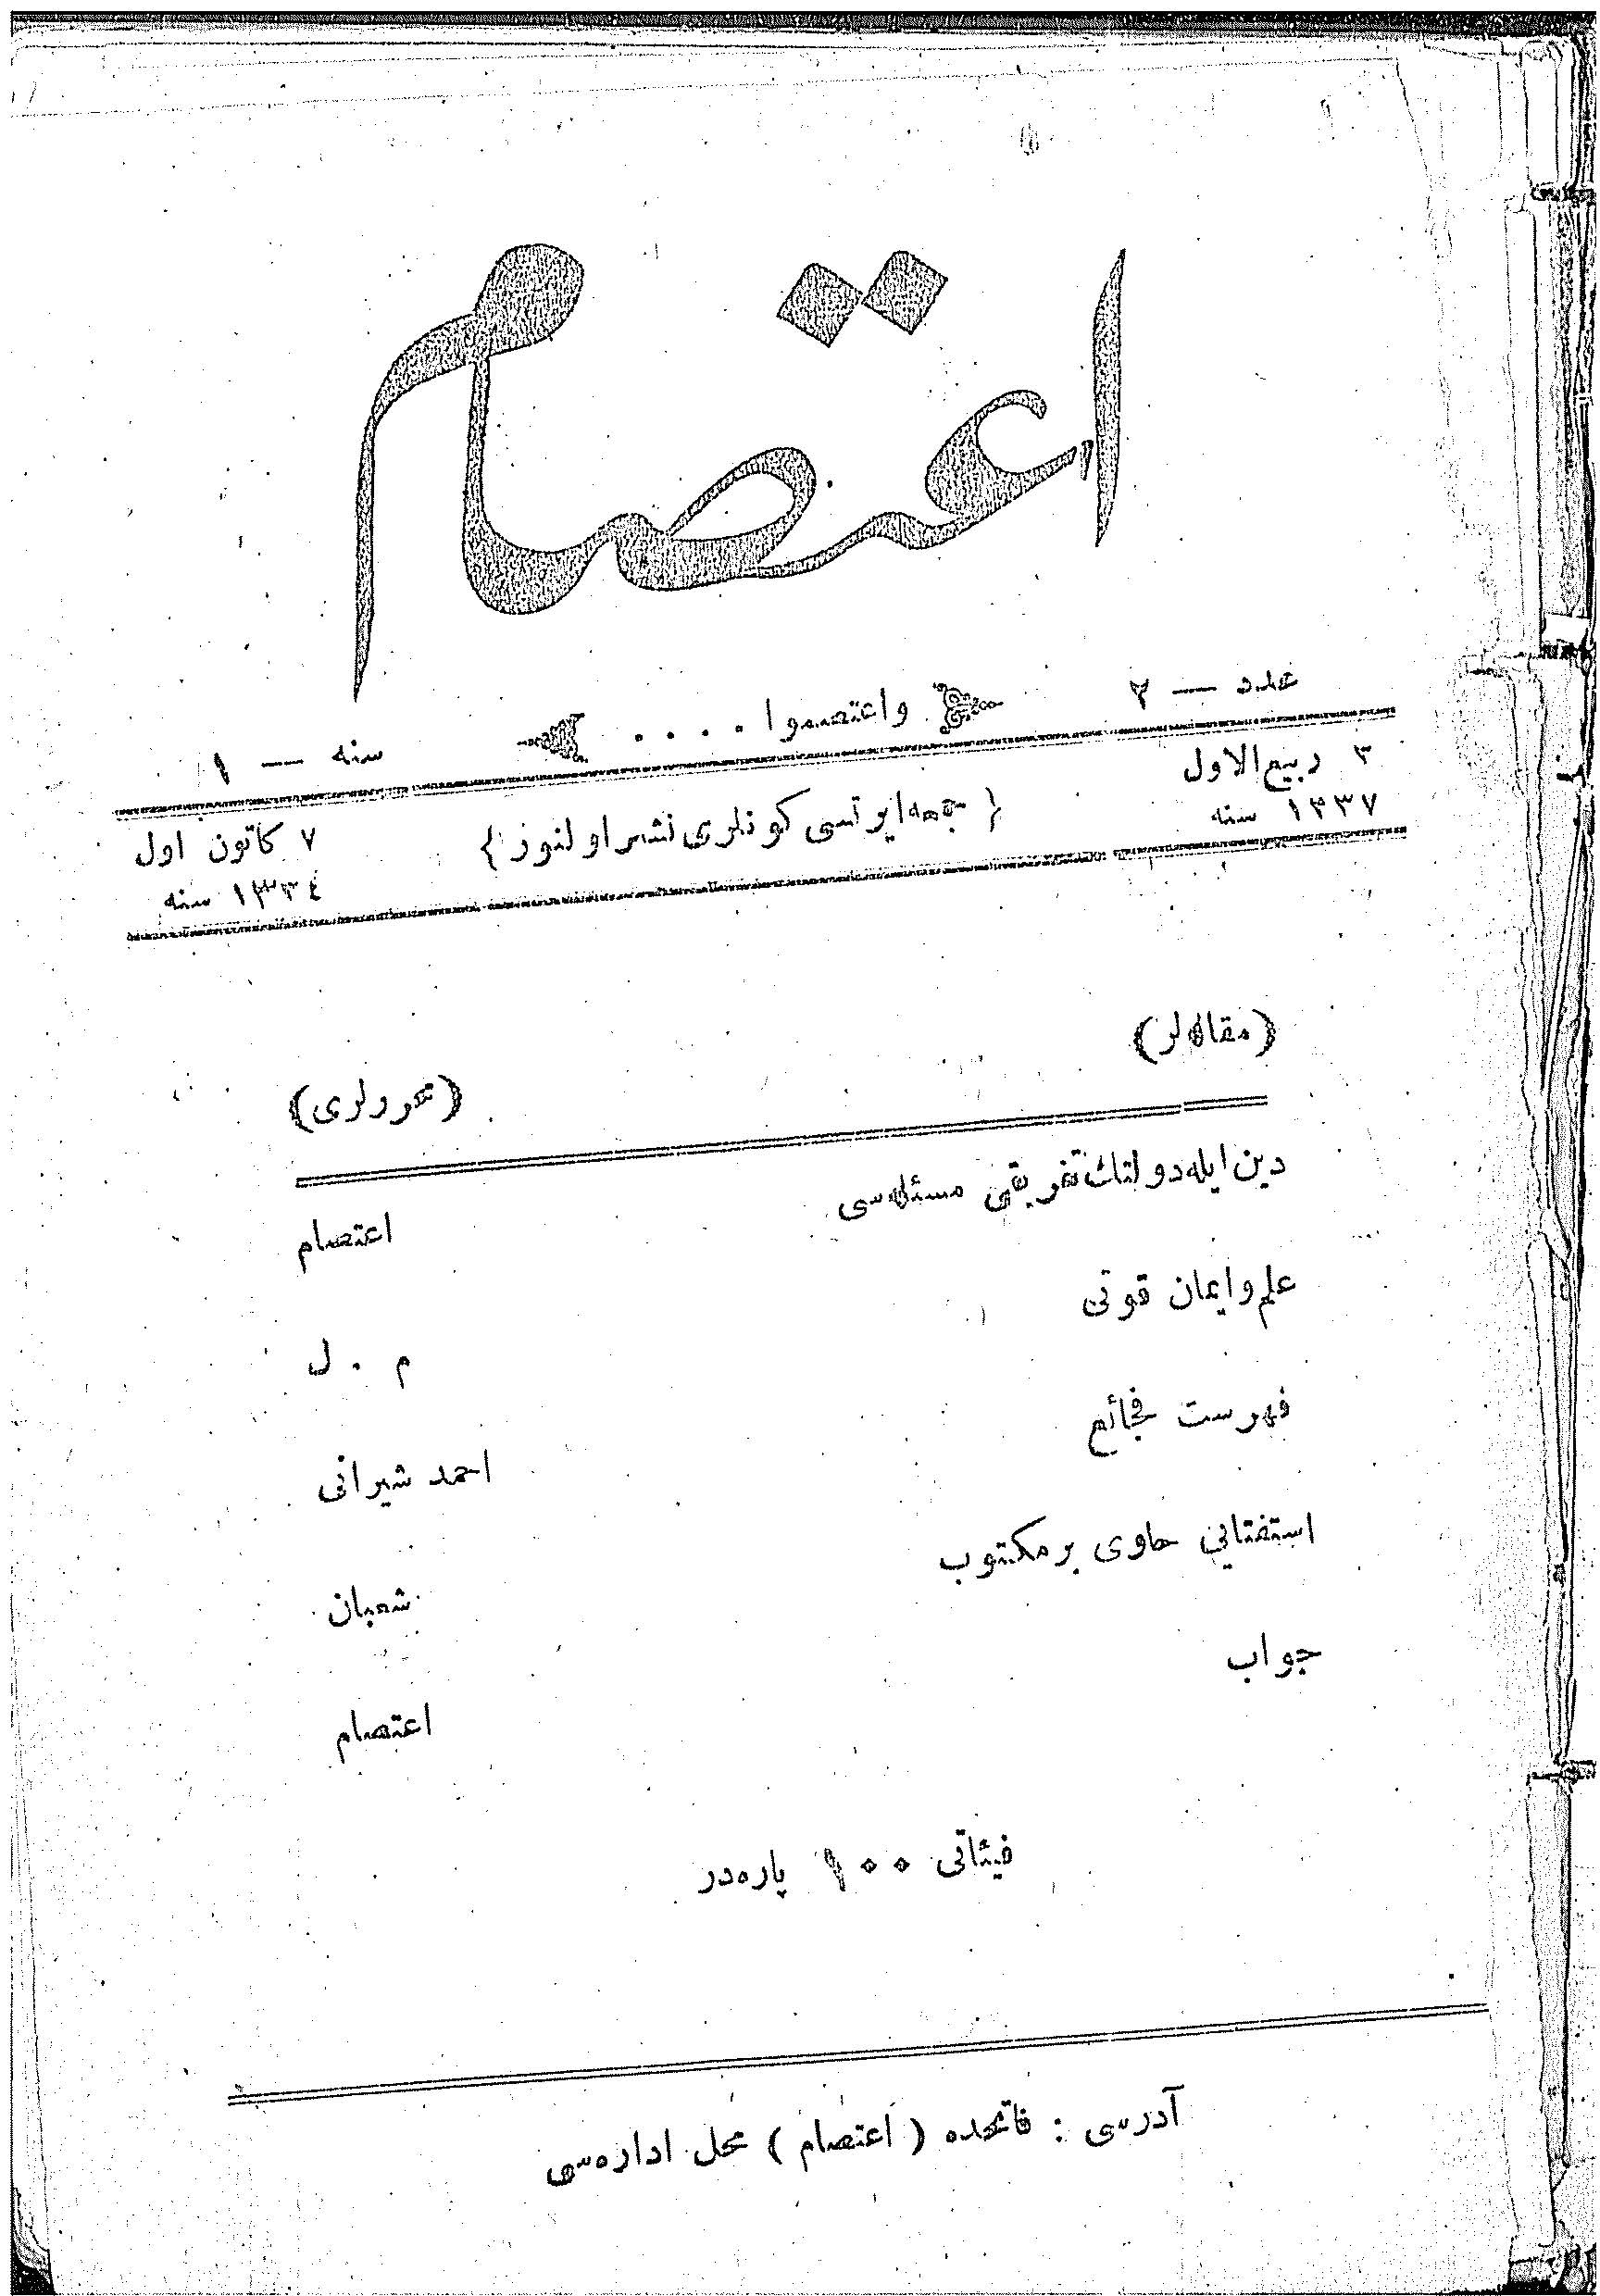 اعتصام
عدد — ٢ واعتصموا . . . . سنه — ١
٣ ربيع الاول { جمعه ايرتسى كونلرى نشر اولنور } ٧ كانون اول
١٣٣٧ سنه ١٣٣٤ سنه
(مقاله‌لر) (محررلرى)
دين ايله دولتك تفريقى مسئله‌سى اعتصام
علم و ايمان قوتى م . ل
فهرست فجائع احمد شيرانى
استفتايى حاوى بر مكتوب شعبان
جواب اعتصام
فيئاتى ١٠٠ پاره‌در
آدرسى : فاتحده ( اعتصام ) محل اداره‌سى